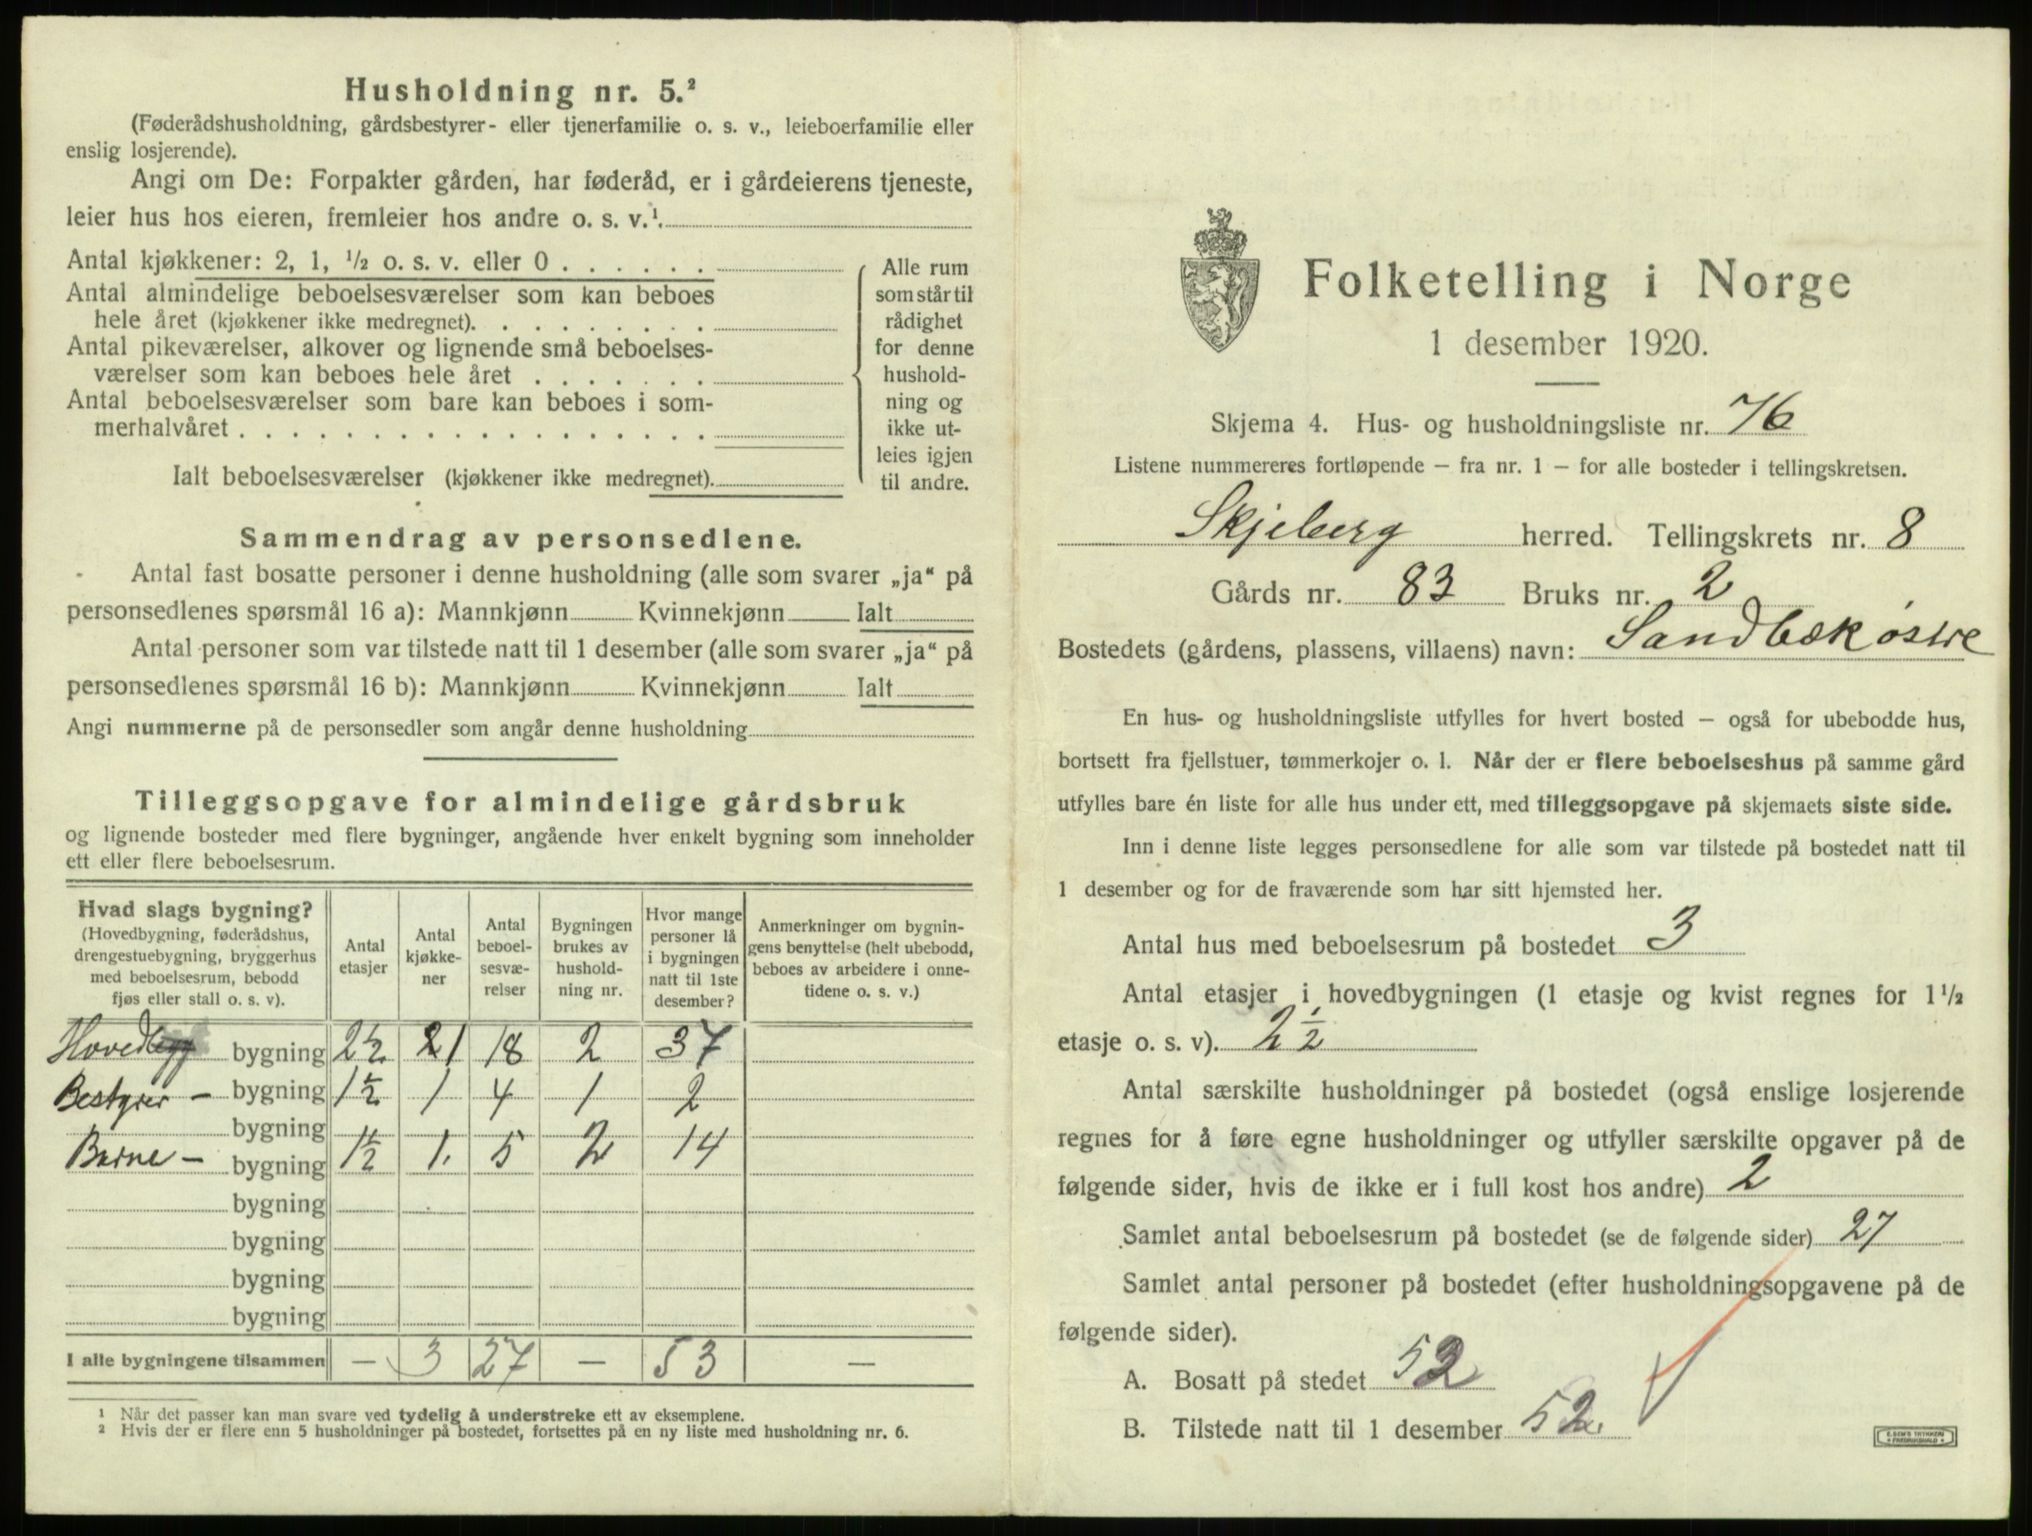 Husholdning nr. 5.²
(Føderådshusholdning, gårdsbestyrer- eller tjenerfamilie o. s. v., leieboerfamilie eller
enslig losjerende).
Angi om De: Forpakter gården, har føderåd, er i gårdeierens tjeneste,
leier hus hos eieren, fremleier hos andre o. s. v.¹.
Antal kjøkkener: 2, 1, ½ o. s. v. eller 0 . . . . . .
Antal almindelige beboelsesværelser som kan beboes
hele året (kjøkkener ikke medregnet). . . . . . . . .
Antal pikeværelser, alkover og lignende små beboelses-
værelser som kan beboes hele året . . . . . . .
Antal beboelsesværelser som bare kan beboes i som-
merhalvåret . . . . . . . . . . . . . . . . . .
Ialt beboelsesværelser (kjøkkener ikke medregnet).
Alle rum
som står til
rådighet
for denne
hushold-
ning og
ikke ut-
leies igjen
til andre.
Sammendrag av personsedlene.
Antal fast bosatte personer i denne husholdning (alle som svarer „ja“ på
personsedlenes spørsmål 16 a): Mannkjønn Kvinnekjønn Ialt
Antal personer som var tilstede natt til 1 desember (alle som svarer „ja“ på
personsedlenes spørsmål 16 b): Mannkjønn Kvinnekjønn Ialt
Angi nummerne på de personsedler som angår denne husholdning
Tilleggsopgave for almindelige gårdsbruk
og lignende bosteder med flere bygninger, angående hver enkelt bygning som inneholder
ett eller flere beboelsesrum.
Hvad slags bygning?
(Hovedbygning, føderådshus,
drengestuebygning, bryggerhus
med beboelsesrum, bebodd
fjøs eller stall o. s. v).
Antal
etasjer
Antal
kjøkke-
ner
Antal
beboel-
sesvæ-
relser
Bygningen
brukes av
hushold-
ning nr.
Hvor mange
personer lå
i bygningen
natt til 1ste
desember?
Anmerkninger om bygnin-
gens benyttelse (helt ubebodd,
beboes av arbeidere i onne-
tidene o. s. v.)
Hoved bygning 2½ 1 18 2 37
Bestyrer - bygning 1½ 1 4 1 2
bygning
Barne - bygning 1½ 1. 5 2 14
bygning
bygning
bygning
bygning
I alle bygningene tilsammen — 3 27 — 53 —
¹ Når det passer kan man svare ved tydelig å understreke ett av eksemplene.
² Hvis der er flere enn 5 husholdninger på bostedet, fortsettes på en ny liste med husholdning nr. 6.
Folketelling i Norge
1 desember 1920.
Skjema 4. Hus- og husholdningsliste nr. 76
Listene nummereres fortløpende — fra nr. 1 — for alle bosteder i tellingskretsen.
Skjeberg herred. Tellingskrets nr. 8
Gårds nr. 83 Bruks nr. 2
Bostedets (gårdens, plassens, villaens) navn: Sandbæk østre
En hus- og husholdningsliste utfylles for hvert bosted — også for ubebodde hus,
bortsett fra fjellstuer, tømmerkojer o. l. Når der er flere beboelseshus på samme gård
utfylles bare én liste for alle hus under ett, med tilleggsopgave på skjemaets siste side.
Inn i denne liste legges personsedlene for alle som var tilstede på bostedet natt til
1 desember og for de fraværende som har sitt hjemsted her.
Antal hus med beboelsesrum på bostedet 3
Antal etasjer i hovedbygningen (1 etasje og kvist regnes for 1½
etasje o. s. v). 2½
Antal særskilte husholdninger på bostedet (også enslige losjerende
regnes for å føre egne husholdninger og utfyller særskilte opgaver på de
følgende sider, hvis de ikke er i full kost hos andre) 2
Samlet antal beboelsesrum på bostedet (se de følgende sider) 27
Samlet antal personer på bostedet (efter husholdningsopgavene på de
følgende sider).
A. Bosatt på stedet 52
B. Tilstede natt til 1 desember 52.